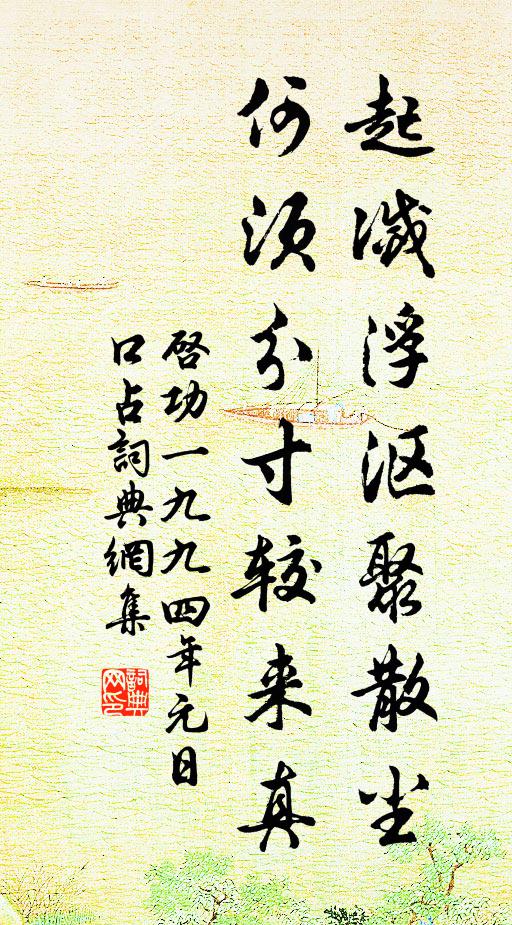 起滅浮沤聚散尘
何须分寸较来真
啓功一九九四年元日
口占詞典網集
詞典网印